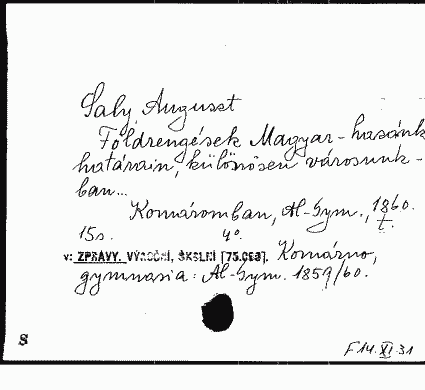 Saly Auguszt
Földrengések Magyar-hazánk
határain, különösen városunk-
ban...
Komáromban, Al-Gym., 1860.
15s. 4°. t.
v: ZPRÁVY. VÝROČNÍ, ŠKOLNÍ [75.(es)]. Komárno,
gymnasia: Al-Gym. 1859/60.
S
F 14.XI.31